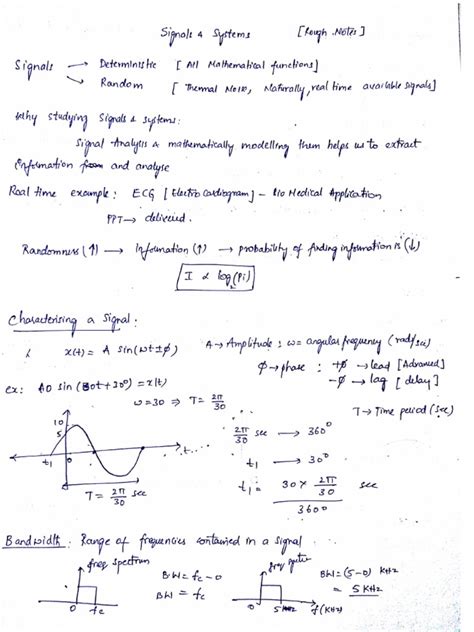 Signals & Systems [Rough Notes]
Signals → Deterministic [All Mathematical functions]
→ Random [Thermal Noise, Naturally, real time available signals]
Why studying Signals & systems:
Signal Analysis & mathematically modelling them helps us to extract
information from and analyse
Real time example: ECG [Electro Cardiogram] - Bio Medical Application
PPT → delivered.
Randomness (↑) → Information (↑) → probability of finding information is (↓)
I α log(Pi)
Characterising a Signal:
x(t) = A sin(ωt±φ) A → Amplitude; ω = angular frequency (rad/sec)
φ → phase : +φ → lead [Advanced]
-φ → lag [delay]
ex: 10 sin(30t+30°) = x(t)
ω = 30 ⇒ T = 2π/30 T → Time period (sec)
10
5
t1 0 t
T = 2π/30 sec
2π/30 sec → 360°
t1 → 30°
t1 = 30 × 2π/30 sec
360°
Bandwidth: Range of frequencies contained in a signal
freq spectrum
BW = fc - 0
BW = fc
0 fc
0 5 KHz f(KHz)
BW = (5-0) KHz
= 5 KHz